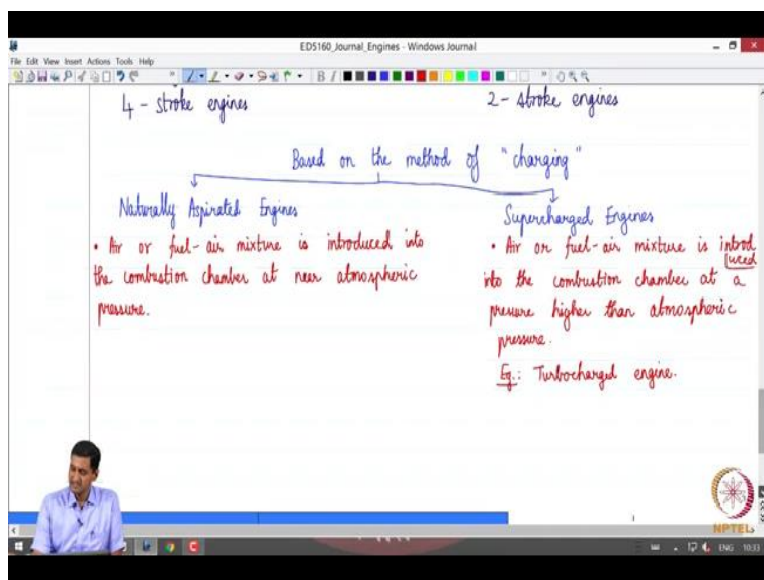 ED5160_Journal_Engines - Windows Journal
File Edit View Insert Actions Tools Help
4 - stroke engines
2 - stroke engines
Based on the method of "charging"
Naturally Aspirated Engines
• Air or fuel-air mixture is introduced into
the combustion chamber at near atmospheric
pressure.
Supercharged Engines
• Air or fuel-air mixture is introd
uced
into the combustion chamber at a
pressure higher than atmospheric
pressure.
Eg.: Turbocharged engine.
NPTEL
ENG 10:33